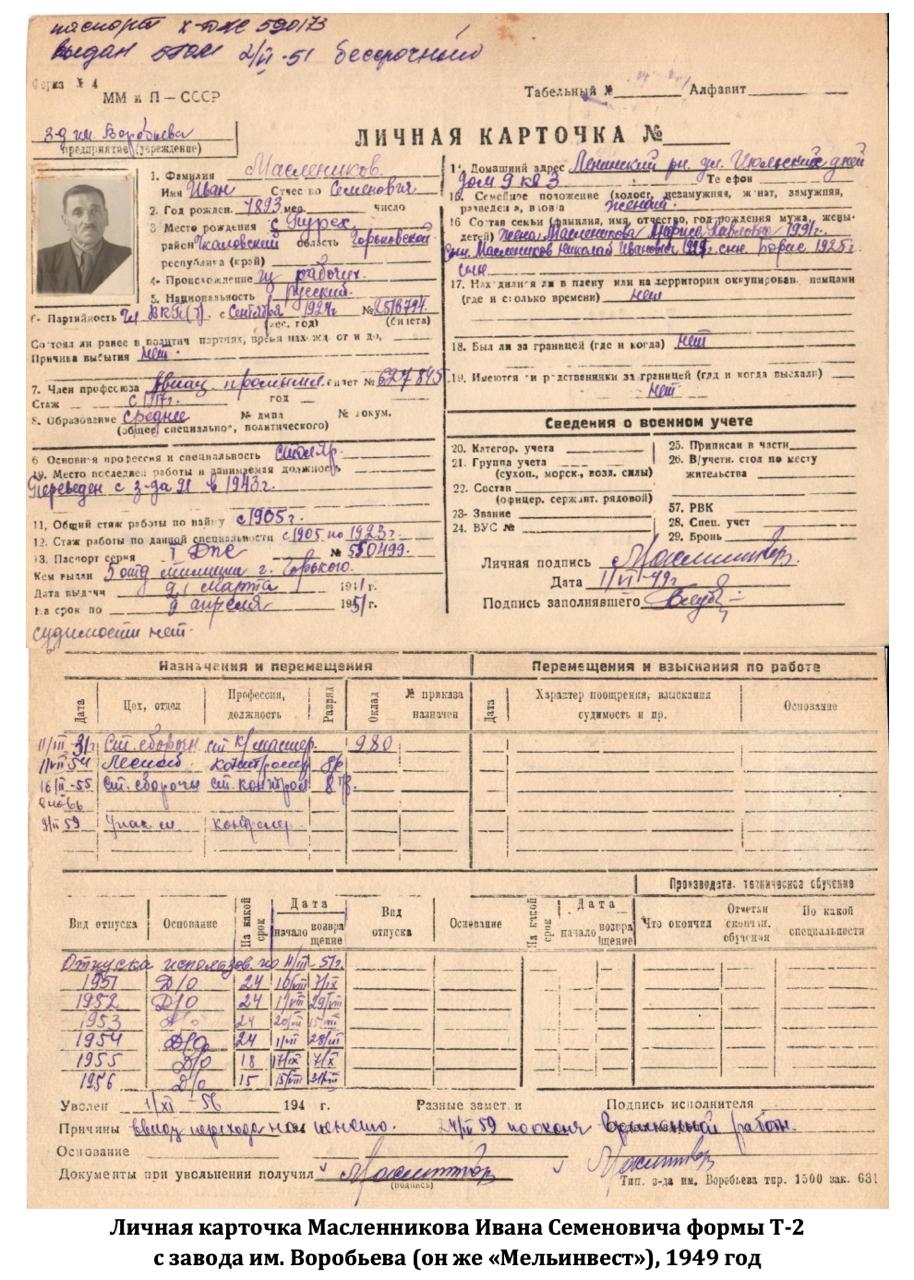 паспорт X-ДЖ 590173
выдан 5 ГОМ 2/VI-51 бессрочный
Форма № 4
ММ и П — СССР
Табельный № Алфавит
з-д им. Воробьева
предприятие (учреждение)
ЛИЧНАЯ КАРТОЧКА №
1. Фамилия Маслеников
Имя Иван Отчество Семенович
2. Год рожден. 1893 мес. число
3 Место рождения с Пурех
район Чкаловский область Горьковской
республика (край)
4. Происхождение из рабочих.
5. Национальность русский.
6. Партийность чл ВКП(б). с Сентября 1924г №2518794
(мес. год) (билета)
Состоял ли ранее в политич партиях, время нахожд. от и до,
Причина выбытия нет.
7. Член профсоюза Авиац. промышл. билет № 627845
Стаж с 1917г. год
8. Образование среднее № дипл № докум.
(общее, специальное, политического)
6 Основная профессия и специальность столяр.
10. Место последней работы и занимаемая должность
Переведен с з-да 21 в 1943г.
11, Общий стаж работы по найму с 1905г.
12. Стаж работы по данной специальности с 1905 по 1923г.
13. Паспорт серия I ДЖ № 550499.
Кем выдан 5 отд милиции г. Горького.
Дата выдачи 9, марта 1941г.
На срок по 9 апреля 1951г.
судимости нет.
14. Домашний адрес Ленинский рн. ул. Июльских дней
дом 9 кв 3 Телефон
15. Семейное положение (холост, незамужняя, женат, замужняя,
разведен а, вдова женат.
16 Состав семьи (фамилия, имя, отчество, год рождения мужа, жены,
детей) жена Масленикова Мария Павловна
сын. Маслеников Николай Иванович сын. Борис 1925г.
сын
17. Находился ли в плену или на территории оккупирован. немцами
(где и сколько времени) нет
18. Был ли за границей (где и когда) нет
19. Имеются ли родственники за границей (где и когда выехали)
нет
Сведения о военном учете
20. Категор. учета
21. Группа учета
(сухоп., морск., возд. силы)
22. Состав
(офицер. сержант. рядовой)
23. Звание
24. ВУС №
25. Приписан в части
26. В/учетн. стол по месту
жительства
57. РВК
28. Спец. учет
29. Бронь
Личная подпись
Дата 1/VI 49г.
Подпись заполнявшего
Назначения и перемещения
Перемещения и взыскания по работе
Дата Цех, отдел Профессия, должность Разряд Оклад № приказа назначен Дата Характер поощрения, взыскания судимость и пр. Основание
11/III-31г. Ст. сборочн ст. К/мастер. 980
1/VII 54 Лесной контролер 8р
16/II-55 Ст. сборочн ст. контрол 8
9/II 59 контролер.
Производств. техническое обучение
Вид отпуска Основание На какой срок Дата начало возвращение Вид отпуска Основание На какой срок Дата начало возвращение Что окончил Отметка окончан. обучения По какой специальности
Отпуска использов. по 11/III-51г.
1951 Д/О 24 10/VIII 7/IX
1952 Д/О 24 1/VIII 29/VIII
1953 Д/О 24
1954 Д/О 24 1/VII 28/VII
1955 Д/О 18 17/IX 7/X
1956 Д/О 15 15/VIII 31/VIII
Уволен 1/XI-56 194 г. Разные заметки Подпись исполнителя
Причины ввиду перехода на пенсию. 24/VI 59 по оконч временной работ.
Основание
Документы при увольнении получил
(подпись)
Тип. з-да им. Воробьева тир. 1500 зак. 631
Личная карточка Масленникова Ивана Семеновича формы Т-2
с завода им. Воробьева (он же «Мельинвест»), 1949 год